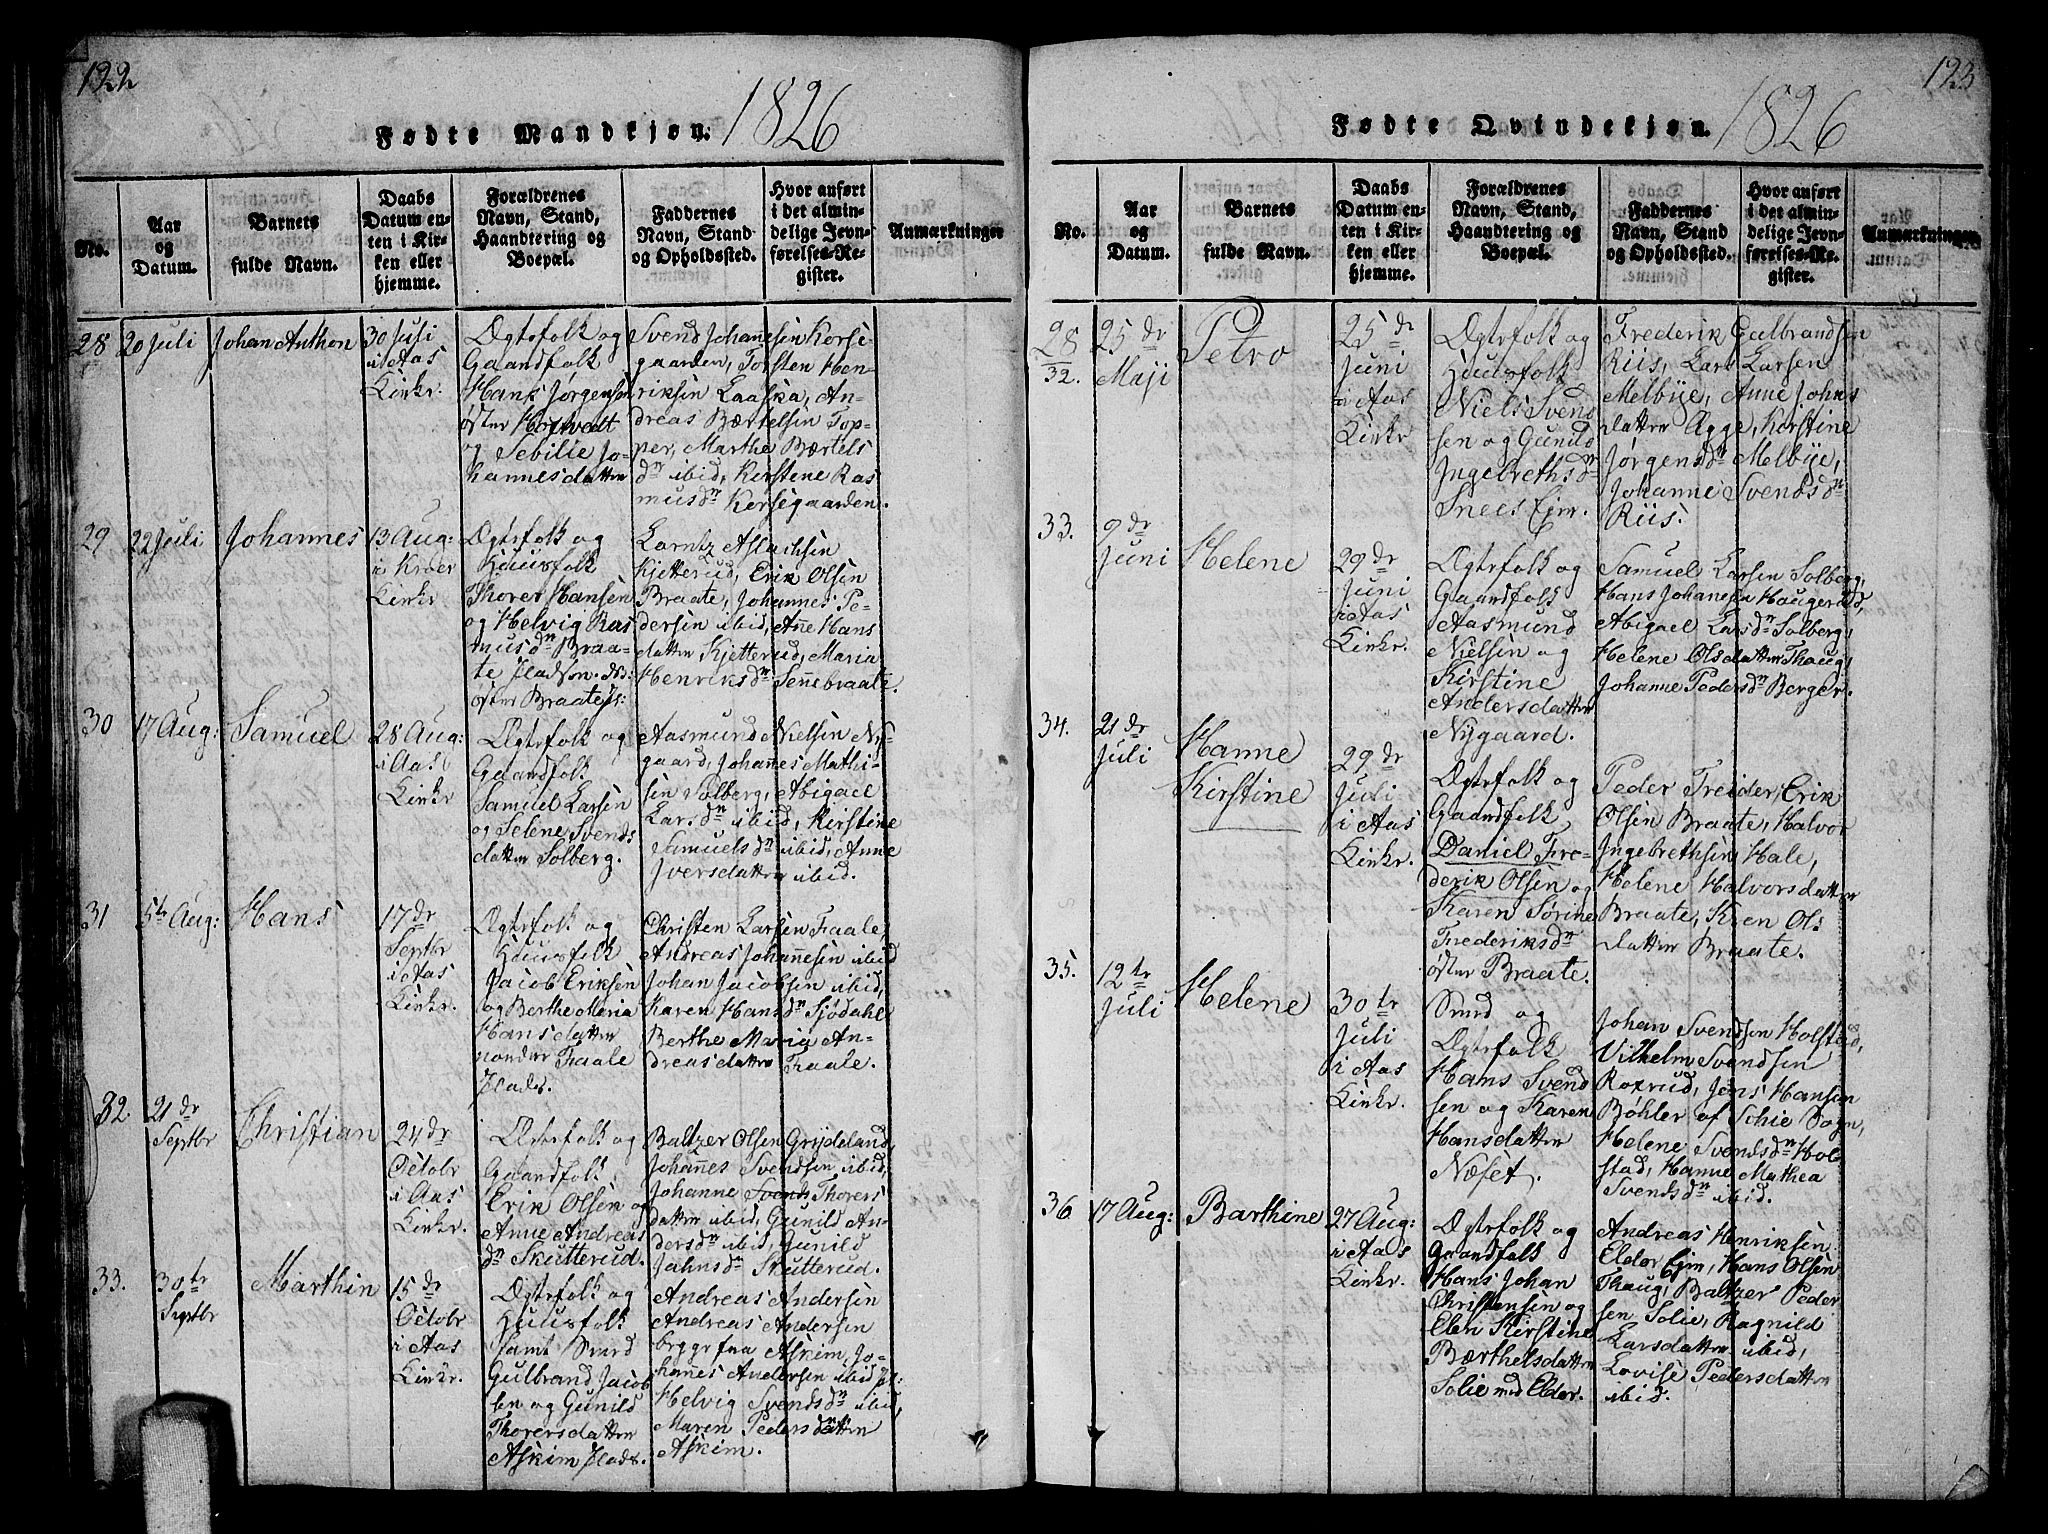 122
Fødte Mandkjøn. 1826
No.
Aar
og
Datum.
Barnets
fulde Navn.
Daabs
Datum en-
ten i Kir-
ken eller
hjemme.
Forældrenes
Navn, Stand,
Haandtering og
Boepæl.
Faddernes
Navn, Stand
og Opholdssted.
Hvor anført
i det almin-
delige Jevn-
førelses-Re-
gister.
Anmærkninger
28
20 Juli
Johan Anthon
30 Juli
i Aas
Kirke.
Ægtefolk og
Gaardfolk
Hans Jørgensen
øster Hogstvedt
og Sebilie Jo-
hannesdatter
Svend Johannesen Korse
gaarden, Torsten Hen-
riksen Laaska, An-
dreas Bærtelsen Top-
per, Marthe Bærtels
dr ibid, Kirstene Ras
musdr Korsegaarden.
29
22 Juli
Johannes
13 Aug:
i Kroer
Kirke
Ægtefolk og
Huusfolk
Thorer Hansen
og Helvig Ras
musdr Braa-
te
øster Braate
Larntz Aslachsen
Kjetterud, Erik Olsen
Braate, Johannes Pe-
dersen ibid, Anne Hans
datter Kjetterud, Maria
Henriksdr Sennebraate.
30
17 Aug:
Samuel
28 Aug:
i Aas
Kirke
Ægtefolk og
Gaardfolk
Samuel Larsen
og Selene Svends
datter Solberg.
Aasmund Nielsen Ny-
gaard, Johannes Mathi-
sen Solberg, Abigael
Larsdr ibid, Kirstine
Samuelsdr ibid, Anne
Iversdatter ibid.
31
5te Aug:
Hans
17de
Septbr
i Aas
Kirke.
Ægtefolk og
Huusfolk
Jacob Eriksen
og Berthe Maria
Hansdatter
nordre Fraale
Plads.
Christen Larsen Fraale,
Andreas Johannesen ibid
Johan Jacobsen ibid,
Karen Hansdr Sjødahl
Berthe Maria An-
dreasdatter Fraale.
32.
21de
Septbr
Christian
24de
Octobr
i Aas
Kirke.
Ægtefolk og
Gaardfolk
Erik Olsen og
Anne Andreas
dr Skutterud.
Baltzer Olsen Grydeland,
Johannes Svendsen ibid,
Johanne Svends Thorers
datter ibid, Gunild An-
dersdr ibid, Gunild
Jahnsdr Skutterud.
33.
30te
Septbr
Marthin
15de
Octobr
i Aas
Kirke.
Ægtefolk og
Huusfolk
samt Smed
Gulbrand Jacob
sen og Gunild
Thorersdatter
Askim Plads.
Andreas Andersen
Andreas Andersen
fra Askim, Jo-
hannes Andersen ibid
Helvig Svendsdr ibid,
Maren Pedersdatter
Askim.
123
Fødte Qvindekjøn. 1826
No.
Aar
og
Datum.
Barnets
fulde Navn.
Daabs
Datum en-
ten i Kir-
ken eller
hjemme.
Forældrenes
Navn, Stand,
Haandtering og
Boepæl.
Faddernes
Navn, Stand
og Opholdssted.
Hvor anført
i det almin-
delige Jevn-
førelses-Re-
gister.
Anmærkninger.
28
32.
25de
Maji
Petro
25de
Juni
i Aas
Kirke
Ægtefolk og
Huusfolk
Niels Svend
sen og Gunild
Ingebrethsdr
Snees Ejer.
Frederik Gulbrandsen
Riis, Lars Larsen
Melbye, Anne Johns
datter Egge, Kirstine
Jørgensdr Melbye,
Johanne Svendsdr
Riis.
33.
9de
Juni
Helene
29de
Juni
i Aas
Kirke.
Ægtefolk og
Gaardfolk
Aasmund
Nielsen og
Kirstine
Andersdatter
Nygaard.
Samuel Larsen Solberg,
Hans Johanesen Haugerud,
Abigael Larsdr Solberg,
Helene Olsdatter Thaug,
Johanne Pedersdr Berger.
34.
21de
Juli
Hanne
Kirstine
29de
Juli
i Aas
Kirke.
Ægtefolk og
Gaardfolk
Daniel Fre-
derik Olsen og
Karen Sørine
Frederiksdr
øster Braate.
Peder Treider, Erik
Olsen Braate, Halvor
Ingebrethsen Hale,
Helene Halvorsdatter
Braate, Karen Ols
datter Braate.
35.
12te
Juli
Helene
30te
Juli
i Aas
Kirke.
Smed og
Ægtefolk
Hans Svend
sen og Karen
Hansdatter
Næset.
Johan Svendsen Holstad,
Vilhelm Svendsen
Roxrud, Jens Hansen
Bøhler af Schie Sogn,
Helene Svendsdr Hol
stad, Hanne Mathea
Svendsdr ibid.
36
17 Aug:
Barthine
27 Aug:
i Aas
Kirke.
Ægtefolk og
Gaardfolk
Hans Johan
Christensen og
Elen Kirstine
Bærthelsdatter
Solie med Eldor.
Andreas Henriksen
Eldor Ejer, Hans Olsen
Thaug, Baltzer Peder
sen Solie, Ragnild
Larsdatter ibid,
Lovise Pedersdatter
ibid.